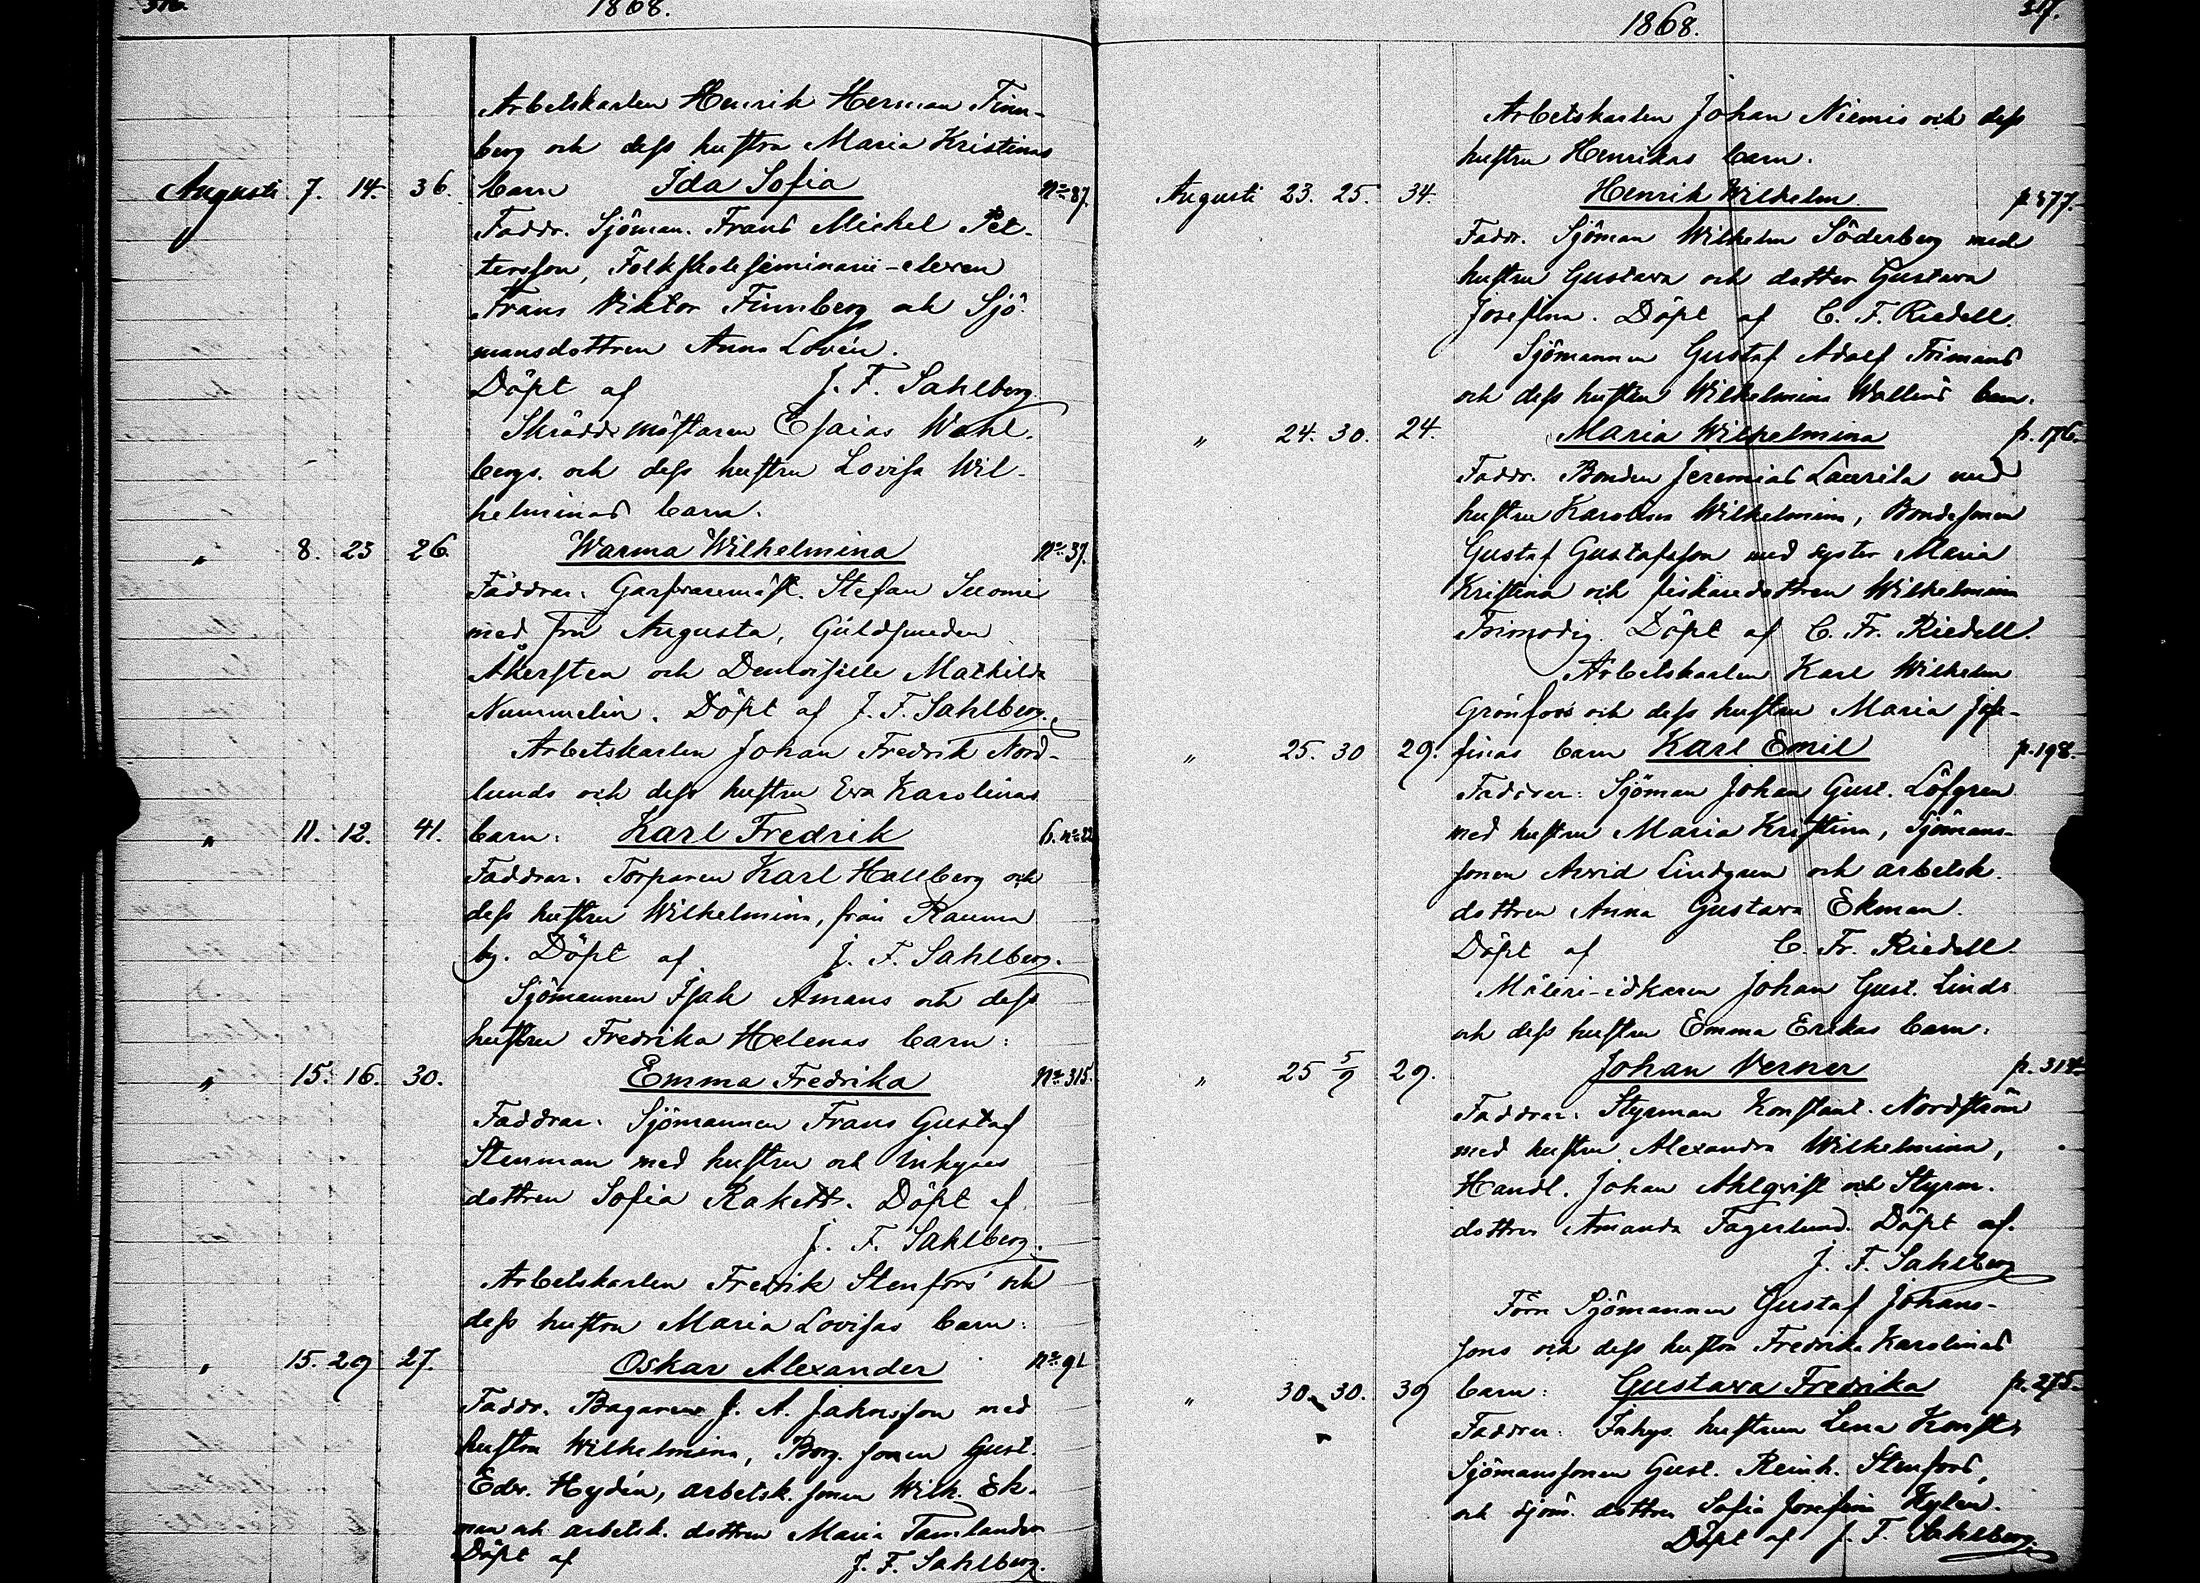 316.
1868.
Arbetskarlen Henrik Herman Finn-
berg och dess hustru Maria Kristinas
Augusti 7. 14. 36. barn Ida Sofia No 87.
Faddr. Sjöman. Frans Mickel Pet-
tersson, Folkskoleseminarii-eleven
Frans Viktor Finnberg och Sjö-
mansdottren Anna Lovén.
Döpt af J. F. Sahlberg.
Skräddmästaren Esaias Wahl-
bergs och dess hustru Lovisa Wil-
helminas barn.
" 8. 23 26 Warma Wilhelmina No 37.
Faddrar: Garfvaremäst. Stefan Suomi
med fru Augusta, Guldsmeden
Åkersten och Demoiselle Mathilda
Nummelin. Döpt af J. F. Sahlberg.
Arbetskarlen Johan Fredrik Nord-
lunds och dess hustru Eva Karolinas
" 11. 12. 41. barn: Karl Fredrik 6. no 22
Faddrar: Torparen Karl Hallberg och
dess hustru Wilhelmina, från Rauma
by. Döpt af J. F. Sahlberg.
Sjömannen Isak Åmans och dess
hustru Fredrika Helenas barn:
" 15. 16. 30. Emma Fredrika No 315.
Faddrar: Sjömannen Frans Gustaf
Stenman med hustru och Inhyses
dottren Sofia Rakett. Döpt af
J. F. Sahlberg.
Arbetskarlen Fredrik Stenfors' och
dess hustru Maria Lovisas barn:
" 15. 29 27. Oskar Alexander No 91
Faddr. Bagaren J. A. Jahnsson med
hustru Wilhelmina, Borg. sonen Gust.
Edv. Hydén, arbetsk. sonen Wilh. Ek-
man och arbetsk. dottren Maria Tamlander
Döpt af J. F. Sahlberg.
317.
1868.
Arbetskarlen Johan Niemis och dess
hustru Henrikas barn.
Augusti 23. 25. 34. Henrik Wilhelm p. 377.
Faddr. Sjöman Wilhelm Söderberg med
hustru Gustava och dotter Gustava
Josefina. Döpt af C. F. Riedell.
Sjömannen Gustaf Adolf Frimans
och dess hustrus Wilhelmina Wallens barn.
" 24. 30. 24. Maria Wilhelmina p. 176.
Faddr. Bonden Jeremias Laurila med
hustru Karolina Wilhelmina, Bondesonen
Gustaf Gustafsson med syster Maria
Kristina och fiskaredottren Wilhelmina
Frimodig. Döpt af C. Fr. Riedell.
Arbetskarlen Karl Wilhelm
Grönfors och dess hustru Maria Jose-
" 25. 30 29. finas barn Karl Emil p. 198.
Faddrar: Sjöman Johan Gust. Löfgren
med hustru Maria Kristina, Sjömans-
sonen Arvid Lindgren och arbetsk.
dottren Anna Gustava Ekman.
Döpt af C. Fr. Riedell.
Måleri-idkaren Johan Gust. Linds
och dess hustru Emma Erikas barn.
" 25 5/9 29. Johan Verner p. 314
Faddrar: Styrman Konstant. Nordström
med hustru Alexandra Wilhelmina,
Handl. Johan Ahlqvist och Styrm.
dottren Amanda Fagerlund. Döpt af.
J. F. Sahlberg
Förn Sjömannen Gustaf Johans-
sons och dess hustru Fredrika Karolinas
" 30. 30. 39 barn: Gustava Fredrika p. 275.
Faddrar: Inhys. hustrun Lena Konst,
Sjömanssonen Gust. Reinh. Stenfors,
och sjöm. dottren Sofia Josefina Hylén.
Döpt af J. F. Sahlberg.